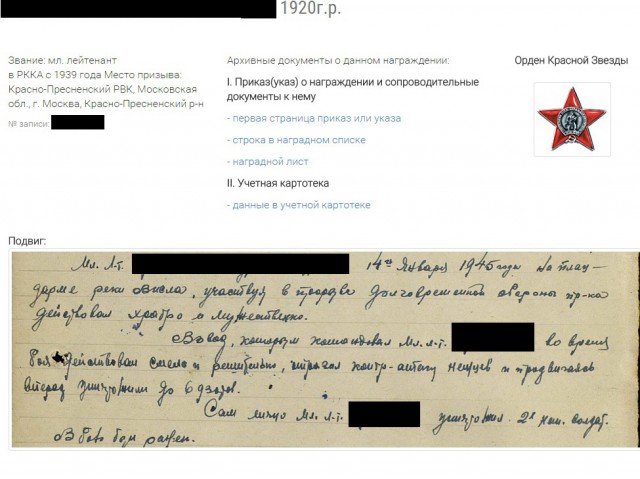 1920г.р.
Звание: мл. лейтенант
в РККА с 1939 года Место призыва:
Красно-Пресненский РВК, Московская
обл., г. Москва, Красно-Пресненский р-н
№ записи:
Архивные документы о данном награждении:
I. Приказ(указ) о награждении и сопроводительные
документы к нему
- первая страница приказ или указа
- строка в наградном списке
- наградной лист
II. Учетная картотека
- данные в учетной картотеке
Орден Красной Звезды
Подвиг:
Мл. Л-т. 14го Января 1945 года на плац-
дарме реки Висла, участвуя в прорыве долговременной обороны пр-ка
действовал храбро и мужественно.
Взвод, которым командовал Мл. л-т. во время
боя действовал смело и решительно, отражая контр-атаку немцев и продвигаясь
вперед уничтожили до 6 дзотов.
Сам лично Мл. л-т. уничтожил 2х нем. солдат.
В бою был ранен.